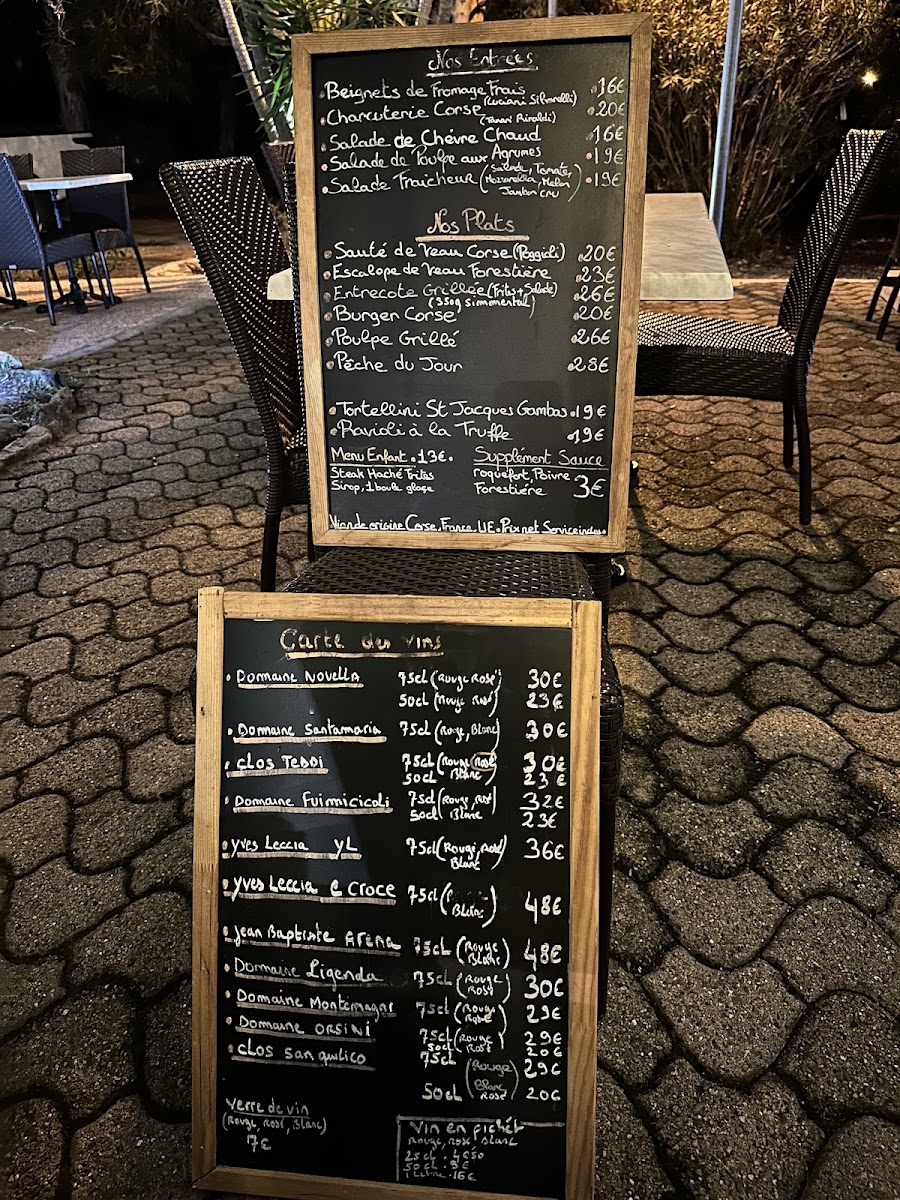 Nos Entrées
Beignets de Fromage Frais .16€
Charcuterie Corse (Luciani Silvarelli) .20€
(Tanari Rinaldi)
Salade de Chèvre Chaud .16€
Salade de Poulpe aux Agrumes .19€
Salade Fraicheur (Salade, Tomate, Mozzarella, Melon Jambon cru) .19€
Nos Plats
Sauté de Veau Corse (Poggioli) .20€
Escalope de Veau Forestière .23€
Entrecote Grillée (Frites + Salade) .26€
(350g Simmental)
Burger Corse .20€
Poulpe Grillé .26€
Pêche du Jour .28€
Tortellini St Jacques Gambas .19€
Ravioli à la Truffe .19€
Menu Enfant .13€.
Steak Haché Frites
Sirop, 1 boule glace
Supplément Sauce
roquefort, Poivre
Forestière 3€
Viande origine Corse, France, UE. Prix net Service inclus.
Carte des vins
Domaine Novella 75cl (Rouge Rosé) 30€
50cl (Rouge Rosé) 23€
Domaine Santamaria 75cl (Rouge, Blanc) 30€
Clos Teddi 75cl (Rouge Rosé 30€
50cl Blanc) 23€
Domaine Fuimicicoli 75cl (Rouge, Rosé 32€
50cl Blanc) 23€
Yves Leccia YL 75cl (Rouge, Rosé Blanc) 36€
Yves Leccia E Croce 75cl (Blanc) 48€
Jean Baptiste Arena 75cl (Rouge Blanc) 48€
Domaine Ligenda 75cl (Rouge Rosé) 30€
Domaine Montemagni 75cl (Rouge Rosé) 29€
Domaine ORSINI 75cl (Rouge 29€
50cl Rosé) 20€
Clos sanquilico 75cl (Rouge 29€
Blanc
50cl Rosé) 20€
Verre de vin
(Rouge, Rosé, Blanc)
7€
Vin en pichet
Rouge, Rosé Blanc
25cl : 4€50
50cl : 9€
1 Litre : 16€